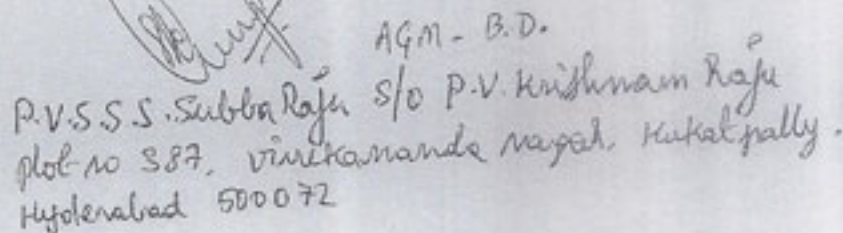 AGM - B.D.
P.V.S.S.S. Subba Raju S/o P.V. Krishnam Raju
plot no 387, vivekananda nagar, Kukatpally.
Hyderabad 500072